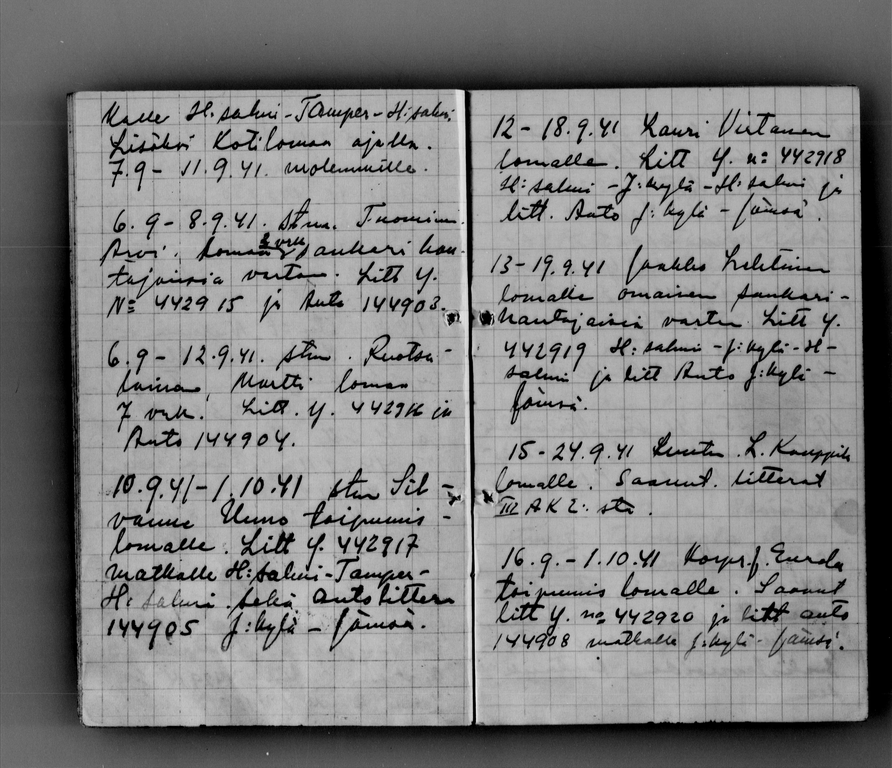 Kalle H:salmi-Tamper-H:salmi
Lisäksi Kotiloman ajalla.
7.9 - 11.9.41. molemmille.
6.9 - 8.9.41. stm. Tuominen
Arvi. Lomaa 2 vrk sankarihau-
tajaisia varten. Litt Y.
No 442915 ja Auto 144903.
6.9 - 12.9.41. stm. Ruotsa-
lainen, Martti lomaa
7 vrk. Litt. Y. 442916 ja
Auto 144904.
10.9.41 - 1.10.41 stm Sil-
vanne Uuno toipumis-
lomalle. Litt Y. 442917
matkalle H:salmi-Tamper-
H:salmi sekä autolittera
144905 J:kylä - Jämsä.
12 - 18.9.41 Lauri Virtanen
lomalle. Litt Y. no 442918
H:salmi - J:kylä - H:salmi ja
litt. Auto J:kylä - Jämsä.
13-19.9.41 Jaakko Lehtinen
lomalle omaisen sankari-
hautajaisia varten Litt Y.
442919 H:salmi - J:kylä - H-
salmi ja litt Auto J:kylä -
Jämsä.
15-24.9.41 L. Kauppila
lomalle. Saanut litterat
III AK E: sta.
16.9. - 1.10.41 Korpr. J. Eurola
toipumis lomalle. Saanut
litt Y. no 442920 ja litt auto
144908 matkalle J:kylä - Jämsä.